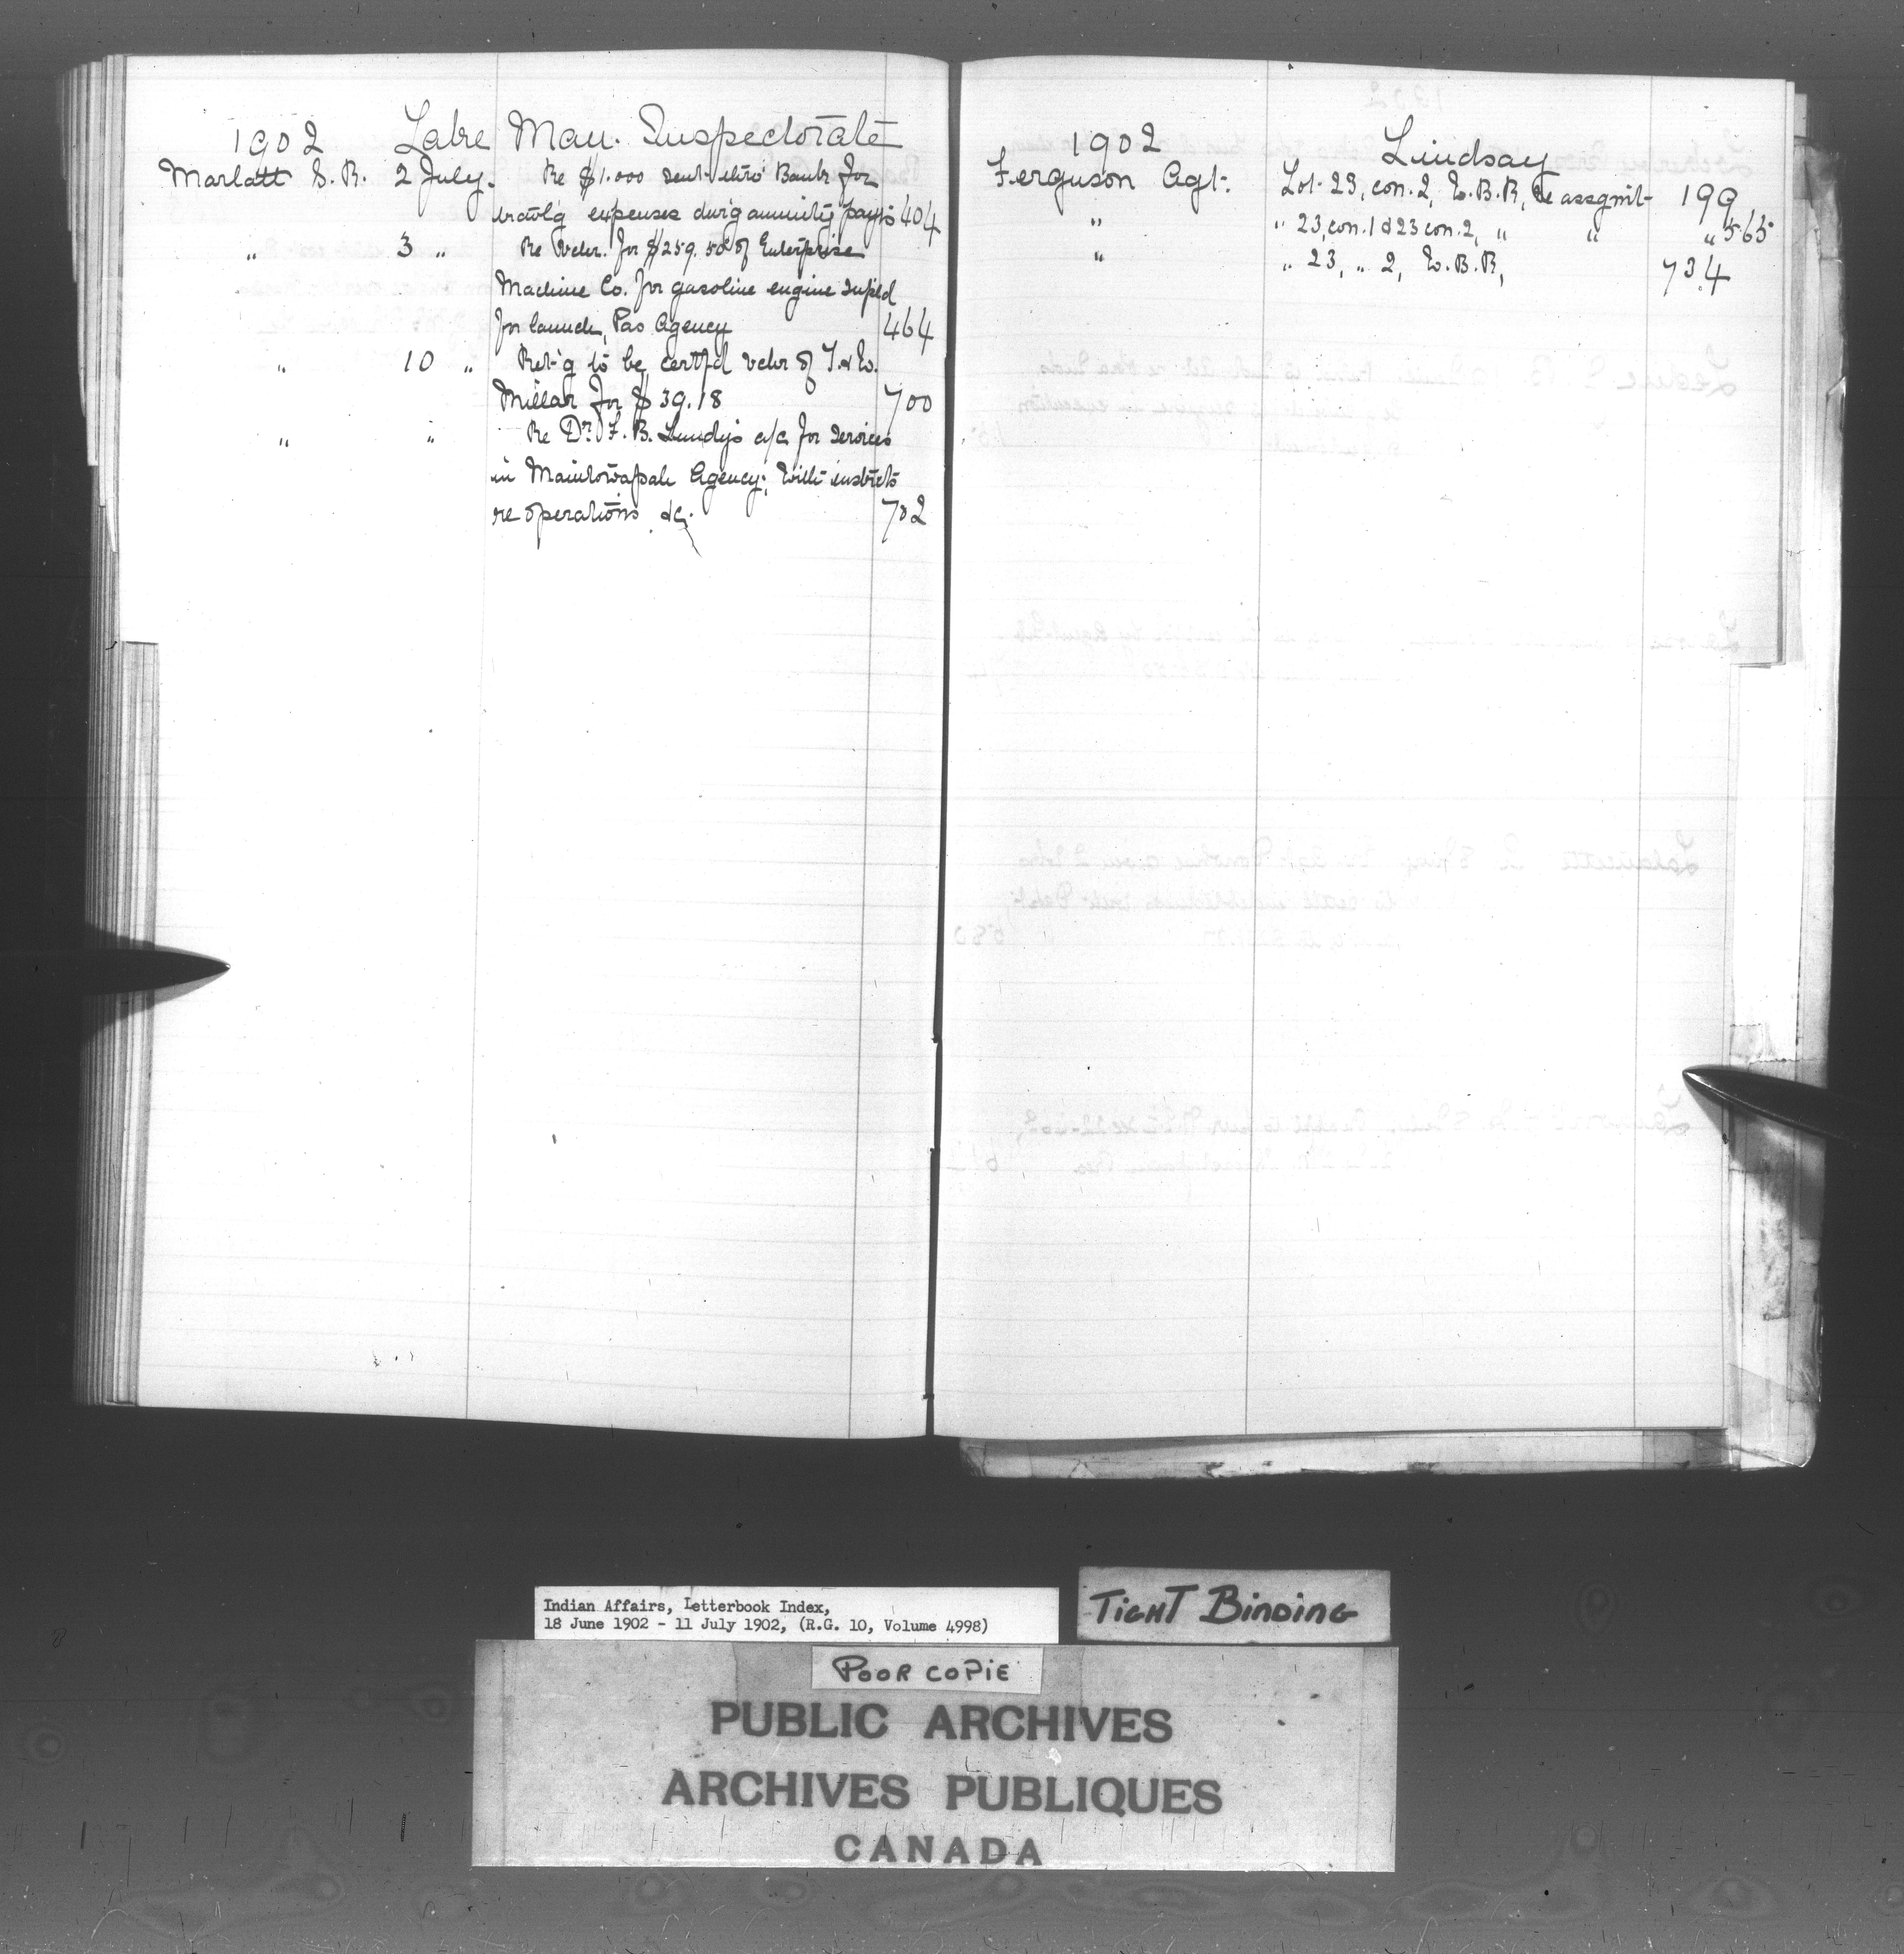 1902 Lake Man. Inspectorate
Marlatt S. R. 2 July. Re $1.000 sent thro' Bank for
travlg expenses durig annuity payts 404
" 3 " Re Vchr. for $259.50 of Enterprise
Machine Co. for gasoline engine supld
for launch, Pas Agency 464
" 10 " Ret'g to be certfd vchr of T. & W.
Millar for $39.18 700
" " Re Dr. F. B. Lundy's a/c for services
in Manitowapah Agency; with instrcts
re operations &c. 702
1902 Lindsay
Ferguson Agt. Lot 23, con. 2, E. B. R, Re assgmt 199
" " 23, con. 1 & 23 con. 2, " " " 565
" " 23, " 2, E. B. R, 734
Indian Affairs, Letterbook Index,
18 June 1902 - 11 July 1902, (R.G. 10, Volume 4998)
TIGHT BINDING
POOR COPIE
PUBLIC ARCHIVES
ARCHIVES PUBLIQUES
CANADA